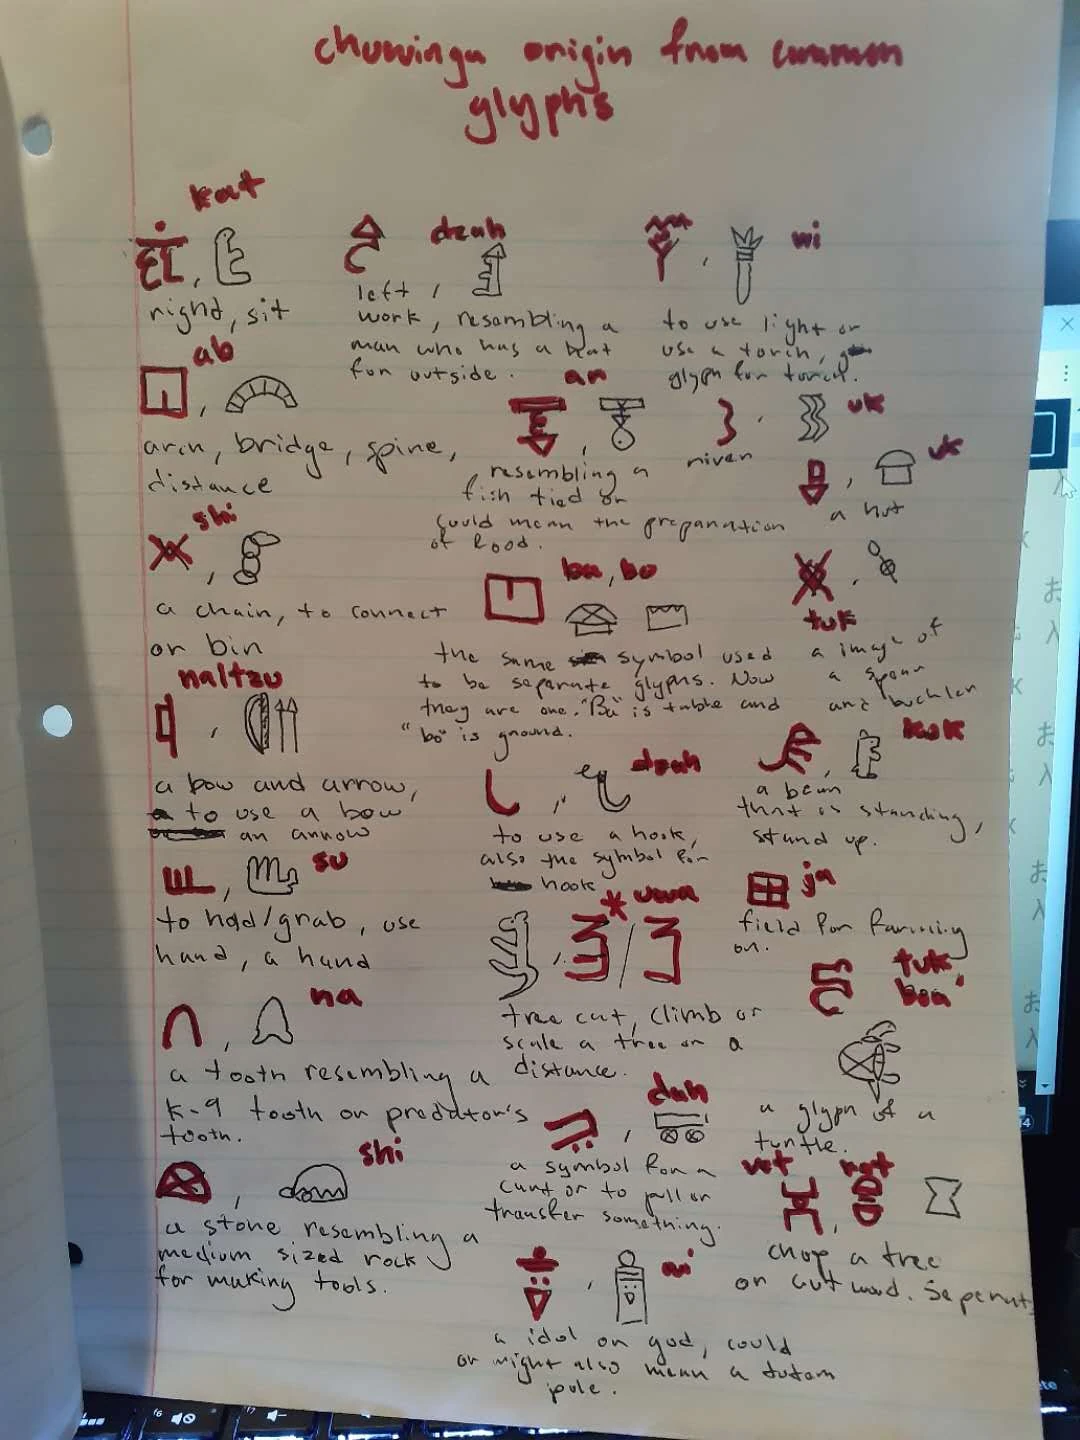 origin from common
glyphs
kat
right, sit
dzah
left /
work, resembling a
man who has a hat
for outside.
wi
to use light or
use a torch,
glyph for torch.
ab
arch, bridge, spine,
distance
an
resembling a
fish tied or
could mean the preparation
of food.
uk
river
uk
a hut
shi
a chain, to connect
or bin
ba, bo
the same symbol used
to be separate glyphs. Now
they are one. "Ba" is table and
"bo" is ground.
tuk
a image of
a spear
and buckler
naltzu
a bow and arrow,
to use a bow
an arrow
dzah
to use a hook,
also the symbol for
hook
kok
a bear
that is standing,
stand up.
su
to hold/grab, use
hand, a hand
* uwa
tree cat, climb or
scale a tree or a
distance.
ja
field for farming
on.
na
a tooth resembling a
K-9 tooth or predator's
tooth.
tuk
boa'
a glyph of a
turtle.
shi
a stone resembling a
medium sized rock
for making tools.
dah
a symbol for a
cart or to pull or
transfer something.
vet
chop a tree
or cut wood. Seperate
ai
a idol or god, could
or might also mean a totem
pole.
f6
f7